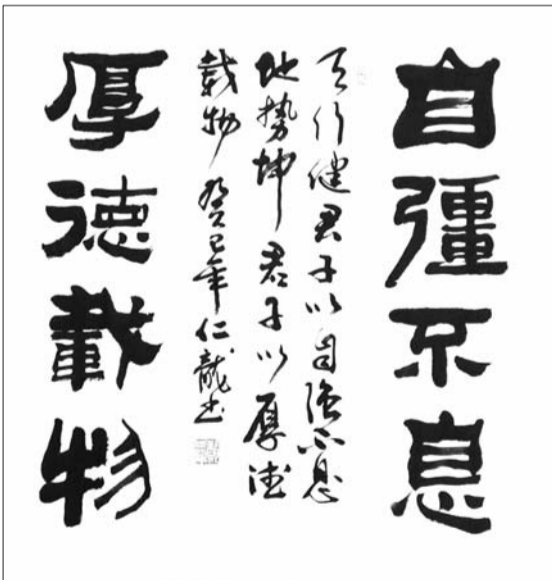 自彊不息
天行健君子以自强不息
地势坤君子以厚德
载物 癸巳年仁龍书
厚德載物